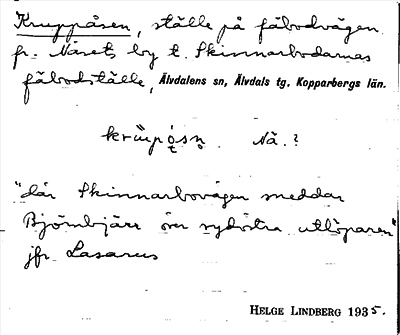 Kruppåsen, ställe på fäbodvägen
fr. Näsets by t. Skinnarbodarnas
fäbodställe, Älvdalens sn, Älvdals tg. Kopparbergs län.
Nä.?
"där Skinnarbovägen
Björnbjärr över sydöstra utlöparen"
jfr Lasarus
HELGE LINDBERG 1935.